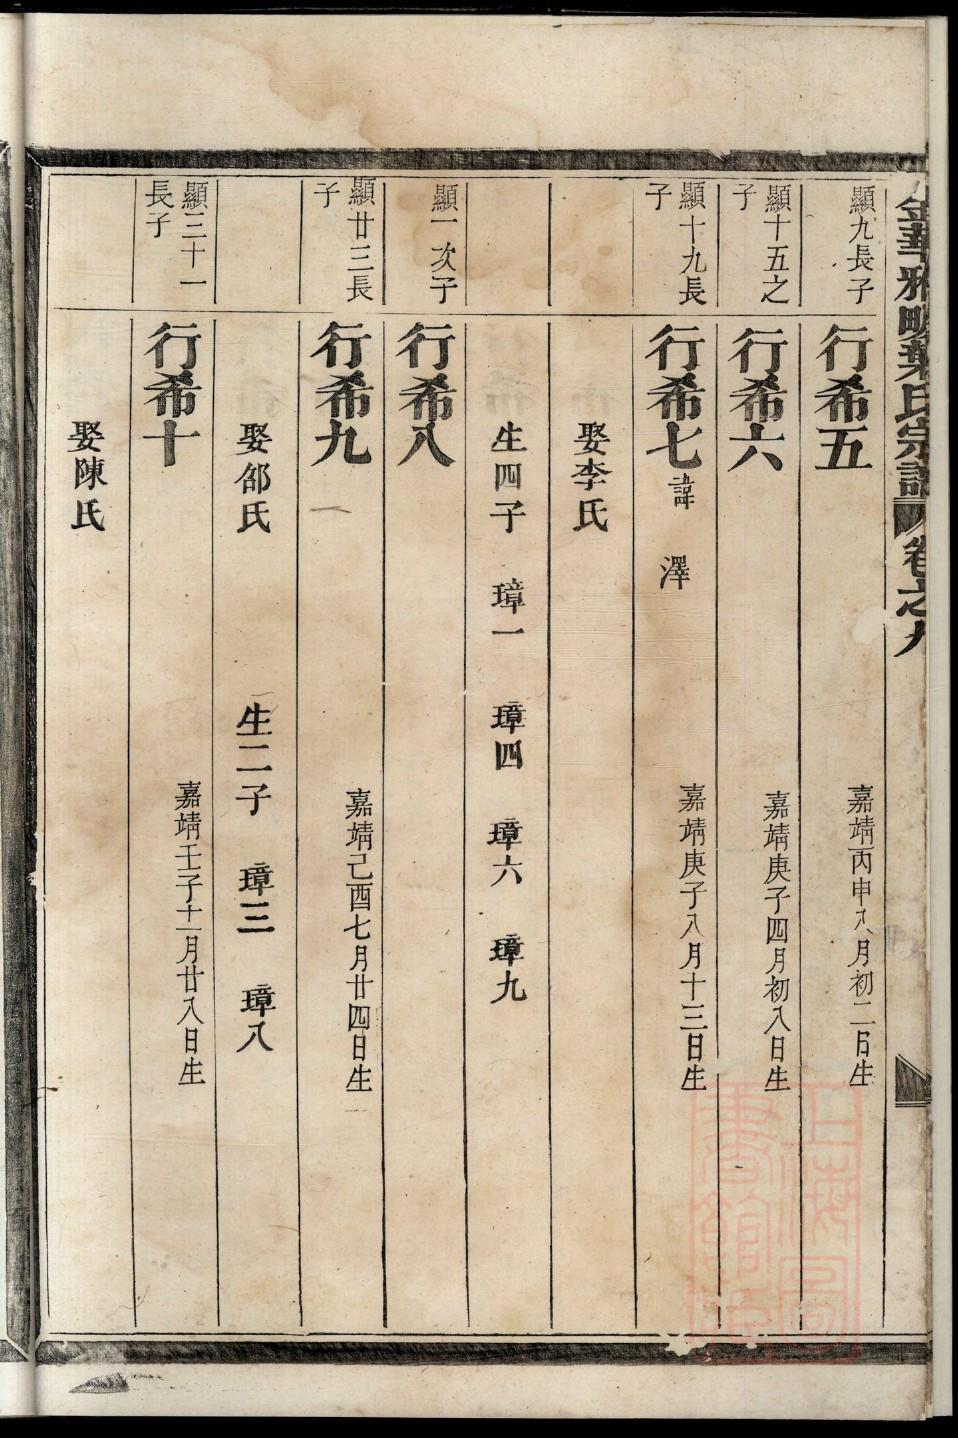 金華雅畈葉氏宗譜 卷之九
顯九長子
行希五
嘉靖丙申八月初二日生
顯十五之子
行希六
嘉靖庚子四月初八日生
顯十九長子
行希七 諱 澤
嘉靖庚子八月十三日生
娶李氏
生四子 璋一 璋四 璋六 璋九
顯一次子
行希八
顯廿三長子
行希九
嘉靖己酉七月廿四日生
娶邵氏 生二子 璋三 璋八
顯三十一長子
行希十
嘉靖壬子十一月廿八日生
娶陳氏
上海圖
書館藏